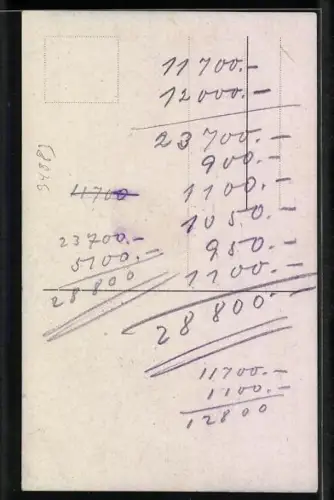 11700.-
12000.-
23700.-
900.-
1100.-
1050.-
950.-
1100.-
28800.-
11700
23700.-
5100.-
28800
11700.-
1100.-
12800